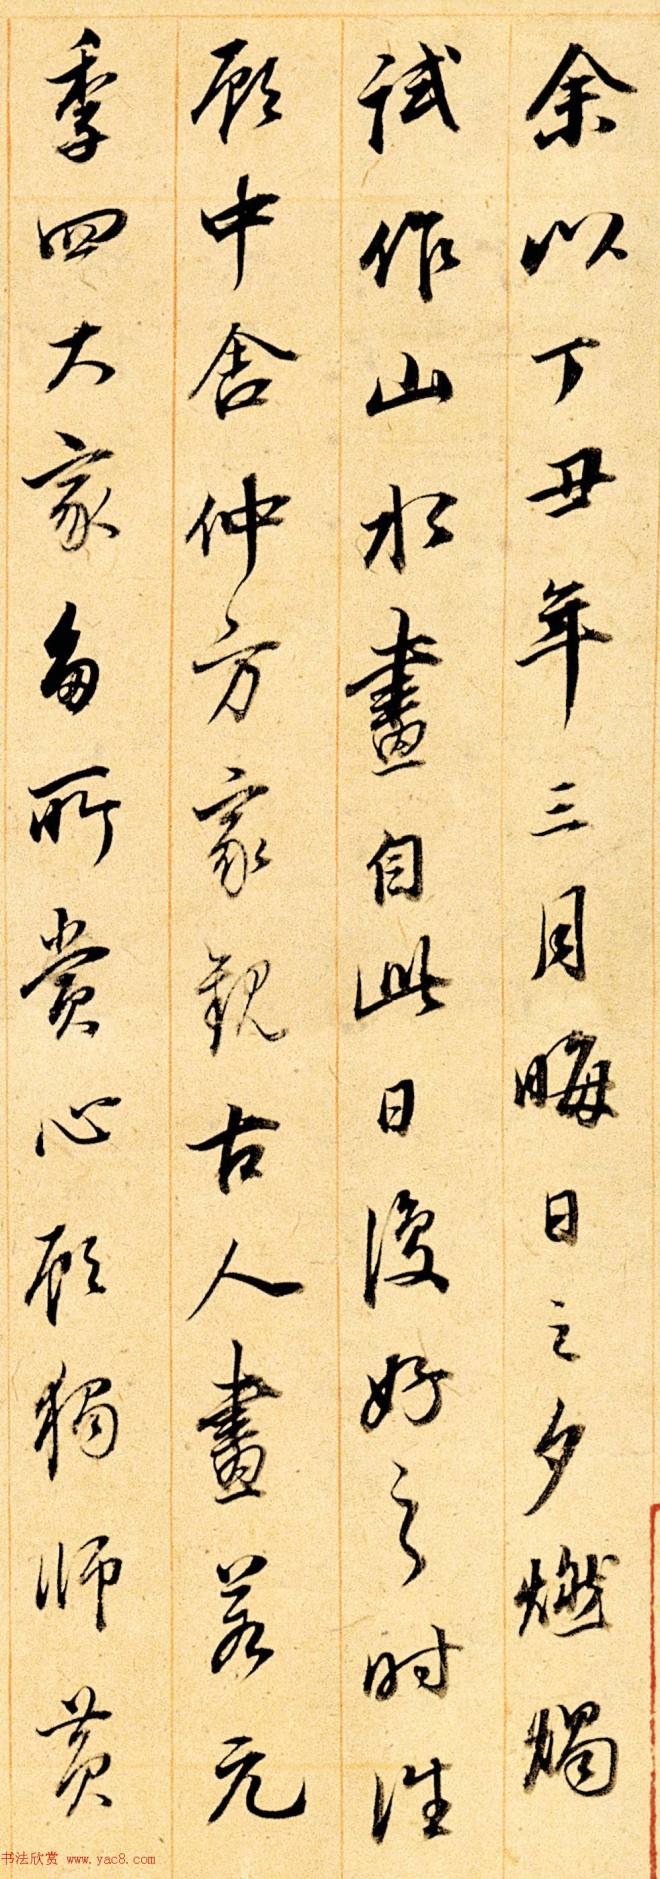 余以丁丑年三月晦日之夕燃燭
試作山水畫自此日復好之時往
顧中舍仲方家觀古人畫若元
季四大家多所賞心顧獨師黃
书法欣赏 www.yac8.com